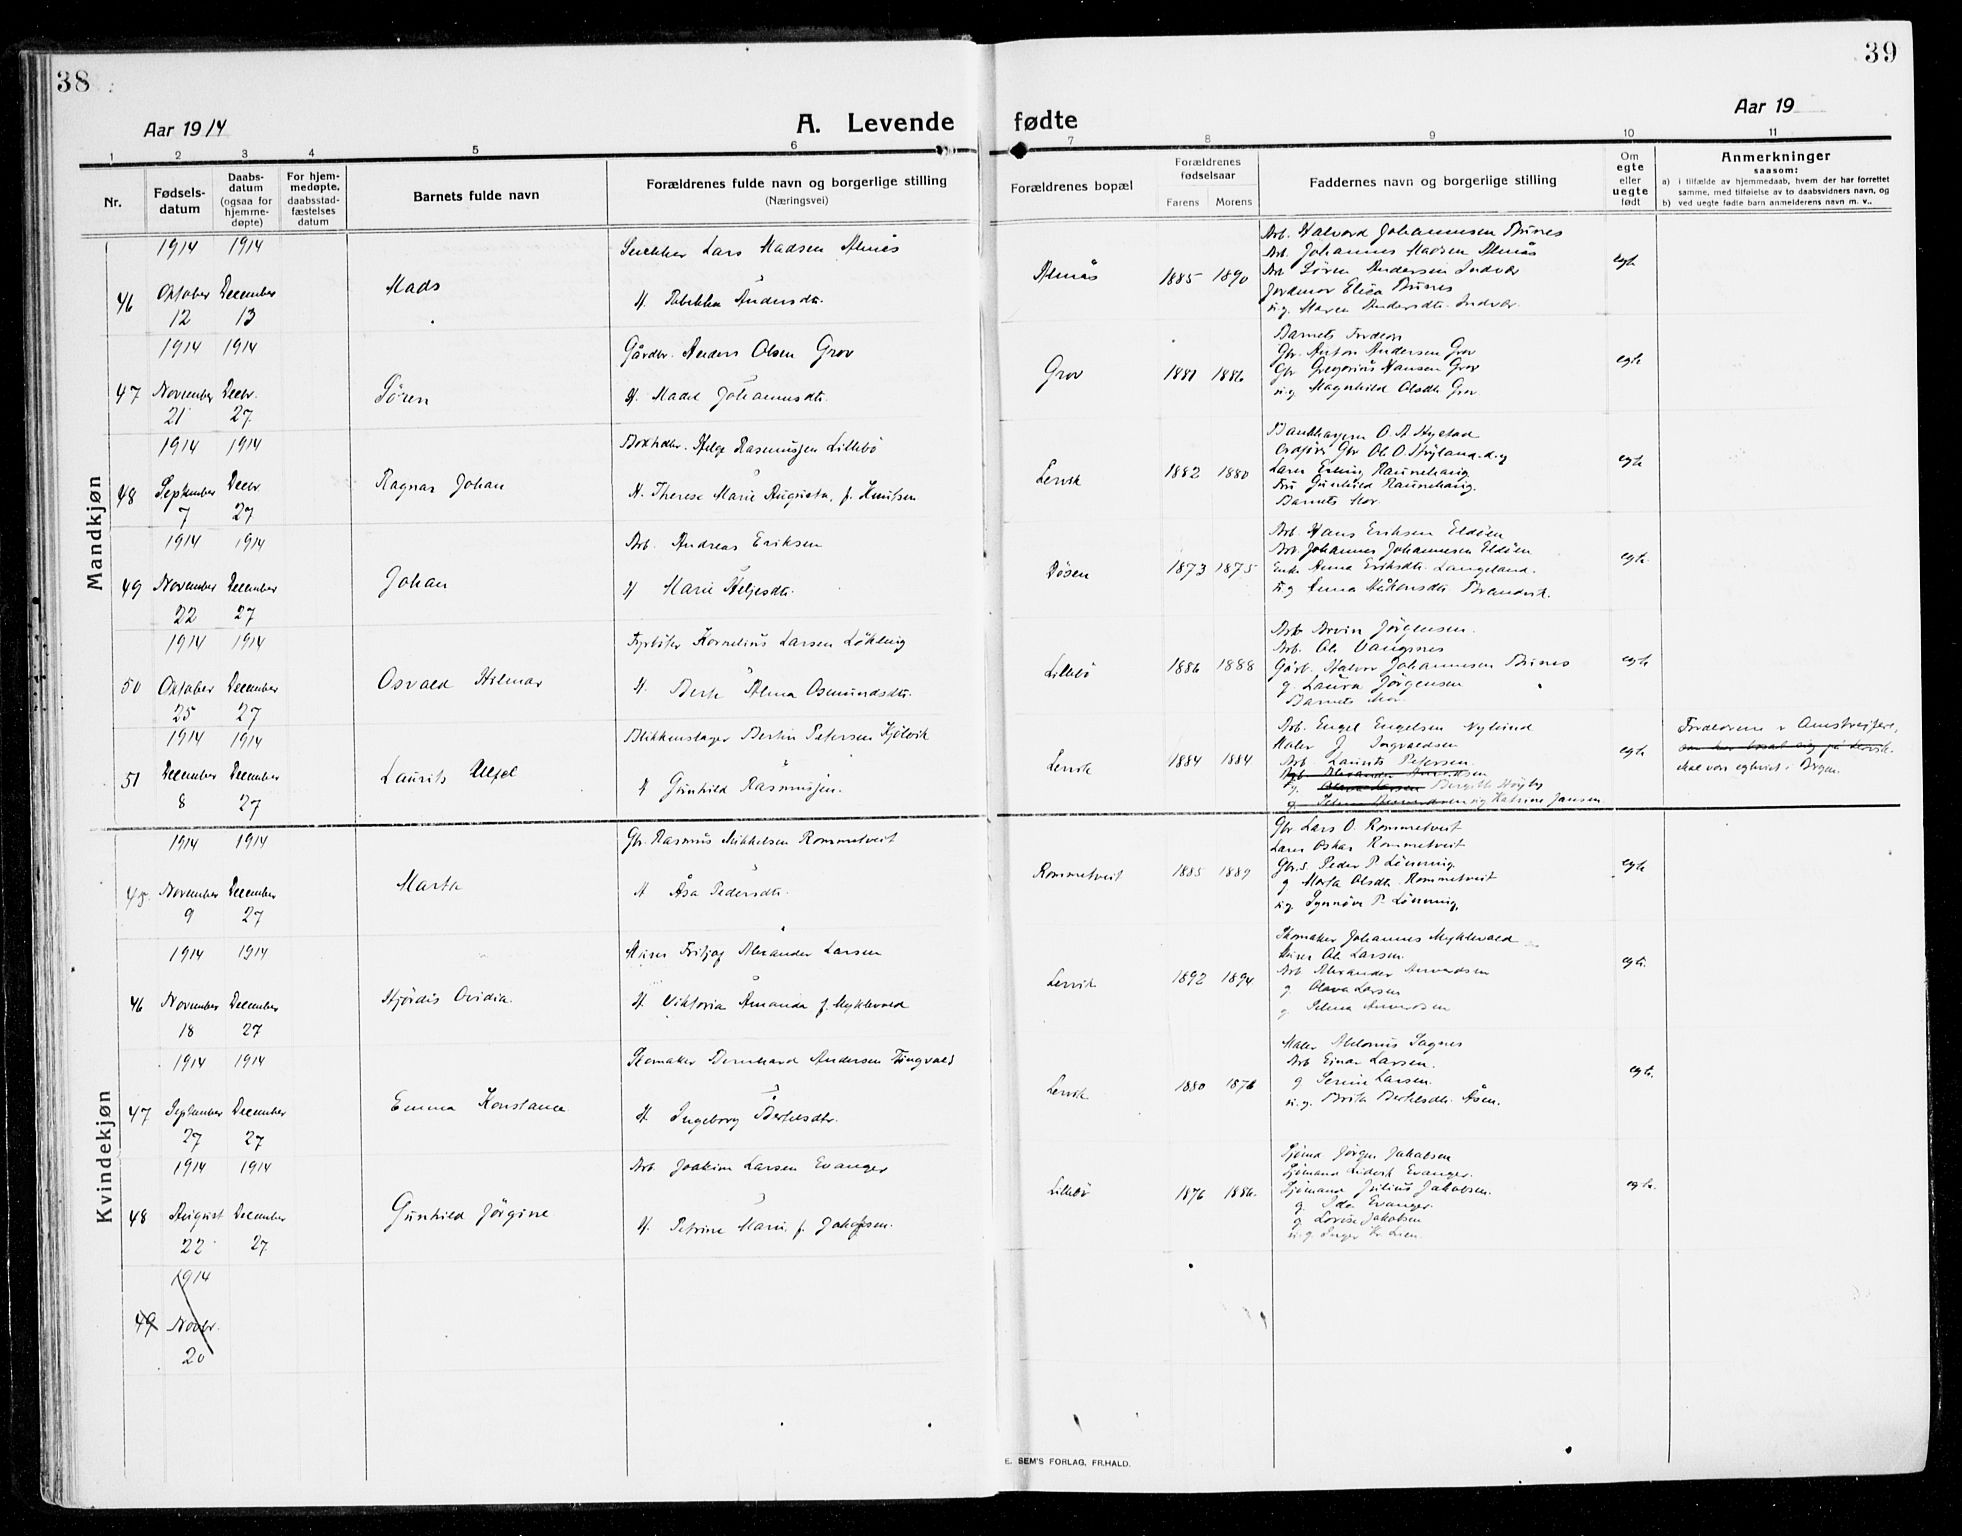 38
39
Aar 1914
A. Levende fødte
Aar 19
1 2 3 4 5 6 7 8 9 10 11
Nr.
Fødsels-
datum
Daabs-
datum
(ogsaa for
hjemme-
døpte)
For hjem-
medøpte,
daabsstad-
fæstelses
datum
Barnets fulde navn
Forældrenes fulde navn og borgerlige stilling
(Næringsvei)
Forældrenes bopæl
Forældrenes
fødselsaar
Farens Morens
Faddernes navn og borgerlige stilling
Om
egte
eller
uegte
født
Anmerkninger
saasom:
a) i tilfælde av hjemmedaab, hvem der har forrettet
samme, med tilføielse av to daabsvidners navn, og
b) ved uegte fødte barn anmelderens navn m. v..
Mandkjøn
46
1914 Oktober 12
1914 December 13
Mads
Lars Madsen Almås
H. Andersdtr.
Almås
1885 1890
Arb. Halvord Johannesen Bunes
Arb. Johannes Madsen Almås
Arb Sören Andersen
Jordmor Bunes
u.g. Maren Andersdtr.
egte
47
1914 November 21
1914 Decbr. 27
Sören
Gårdbr. Anders Olsen Grov
H. Johannesdtr.
Grov
1881 1886
Barnets
Gbr. Anton Andersen Grov
Gbr Gregorius Hansen Grov
u.g Magnhild Olsdtr Grov
egte
48
1914 September 7
1914 Decbr 27
Ragnar Johan
Helge Rasmussen Lillebö
H. Therese Marie Augusta, f. Knutsen
Lervik
1882 1880
Barnets Mor.
egte
49
1914 November 22
1914 December 27
Johan
Arb. Andreas Eriksen
H Marie Heljesdtr.
Døsen
1873 1875
Arb. Hans Eriksen Eldöen
Arb. Johannes Johannesen Eldöen
Enke Anna Eriksdtr. Langeland.
u.g Anna Håkonsdtr Brandvik.
egte
50
1914 Oktober 25
1914 December 27
Osvald Hilmar
Fyrböter Kornelius Larsen Lökling
H. Berte Alma Osmundsdtr.
Lillebö
1886 1888
Arb Arvin Jörgensen.
Arb. Ole Vangsnes
Gårb. Halvor Johannesen Bunes
g. Laura Jörgensen
Barnets Mor.
egte
51
1914 December 8
1914 December 27
Laurits
Blikkenslager Bertin Petersen Kjölvik
H Gunhild Rasmussen.
Lervik
1884 1884
Arb. Engel Engelsen Nylund
Maler J. Ingvaldsen
Arb Laurits Petersen.
g. Bergitte Höyby
Katrine Jansen
egte
skal være egteviet i Bergen.
Kvindekjøn
45
1914 November 9
1914 December 27
Marta
Gbr. Rasmus Mikkelsen Rommetveit
H Åsa Pedersdtr.
Rommetveit
1885 1889
Gbr Lars O. Rommetveit
Oskar Rommetveit
Peder P. Lönning
g Marta Olsdtr. Rommetveit
u.g. Synnöve P. Lönning.
egte
46
1914 November 18
1914 December 27
Hjördis Ovidia.
Fritjof Alexander Larsen
H. Viktoria Amanda f. Myklevold
Lervik
1892 1894
Skomaker Johannes Myklevold
Ole Larsen.
Arb Alexander
g Olava Larsen
g Selma
egte.
47
1914 September 27
1914 December 27
Emma Konstance
Skomaker Bernhard Andersen Tingvald
H. Ingeborg Bertelsdtr.
Lervik
1880 1876
Maler Sagnes
Arb Einar Larsen.
g Serine Larsen.
u.g. Brita Bertelsdtr. Åsen.
egte.
48
1914 August 22
1914 December 27
Gunhild Jörgine
Arb. Joakim Larsen Evanger
H. Petrine Marie, f. Jakobsen.
Lillebö
1876 1886.
Sjömd Jörgen Jakobsen
Sjömand Evanger
Sjömand Julius Jakobsen.
g. Ida Evanger
g Lovise Jakobsen
u.g. Inger Kr. Lien
egte.
49
1914 Novbr. 20
E. SEM'S FORLAG, FR.HALD.